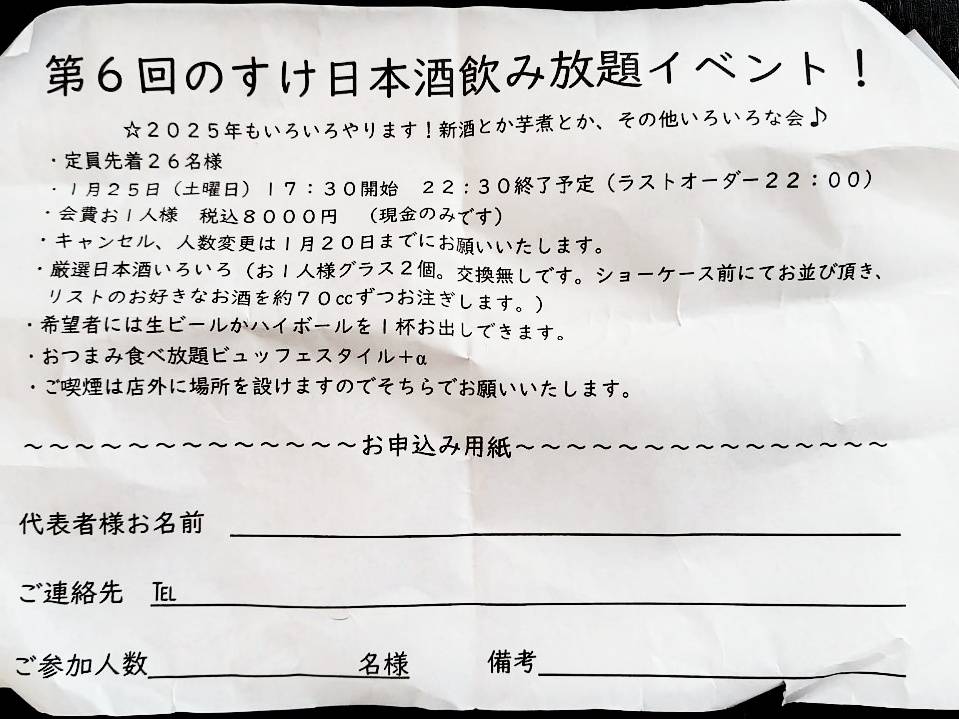 第６回のすけ日本酒飲み放題イベント！
☆２０２５年もいろいろやります！新酒とか芋煮とか、その他いろいろな会♪
・定員先着２６名様
・１月２５日（土曜日）１７：３０開始　２２：３０終了予定（ラストオーダー２２：００）
・会費お１人様　税込８０００円　（現金のみです）
・キャンセル、人数変更は１月２０日までにお願いいたします。
・厳選日本酒いろいろ（お１人様グラス２個。交換無しです。ショーケース前にてお並び頂き、
リストのお好きなお酒を約７０ccずつお注ぎします。）
・希望者には生ビールかハイボールを１杯お出しできます。
・おつまみ食べ放題ビュッフェスタイル＋α
・ご喫煙は店外に場所を設けますのでそちらでお願いいたします。
～～～～～～～～～～～～～お申込み用紙～～～～～～～～～～～～～～～
代表者様お名前
ご連絡先　℡
ご参加人数　　　　　　　名様　　　備考